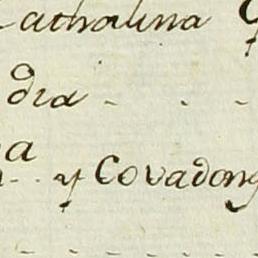 Catholina
dia - . -
a
y Covadong